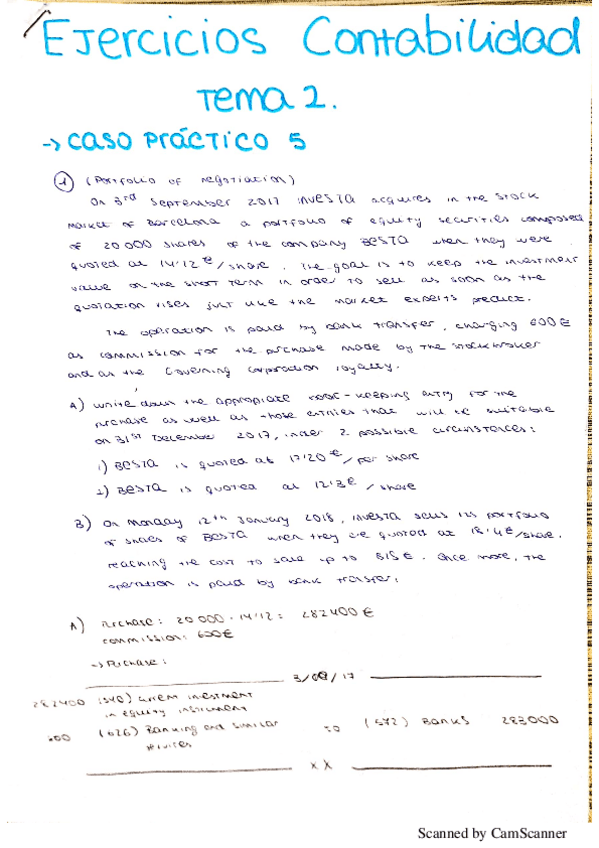 Ejercicios Contabilidad
Tema 2.
-> CASO PRÁCTICO 5
1 (Portfolio of negotiation)
On 3rd September 2017 INVESTA acquires in the stock
market of Barcelona a portfolio of equity securities composed
of 20 000 shares of the company BESTA when they were
quoted at 14'12 €/share. The goal is to keep the investment
value on the short term in order to sell as soon as the
quotation rises just like the market experts predict.
The operation is paid by bank transfer, charging 600 €
as commission for the purchase made by the stockbroker
and as the Governing corporation royalty.
A) Write down the appropiate book-keeping entry for the
purchase as well as those entries that will be suitable
on 31st December 2017, under 2 possible circumstances:
1) BESTA is quoted at 17'20 €/per share
2) BESTA is quoted at 12'3 €/share
B) On Monday 12th January 2018, Investa sells its portfolio
of shares of BESTA when they are quoted at 18'4 €/share,
reaching the cost to sale up to 515 €. Once more, the
operation is paid by bank transfer.
A) Purchase: 20 000 · 14'12 = 282400 €
commission: 600 €
-> Purchase:
3/09/17
282400 (540) Current investment
in equity instrument
600 (626) Banking and similar to (572) Banks 283000
services
x x
Scanned by CamScanner